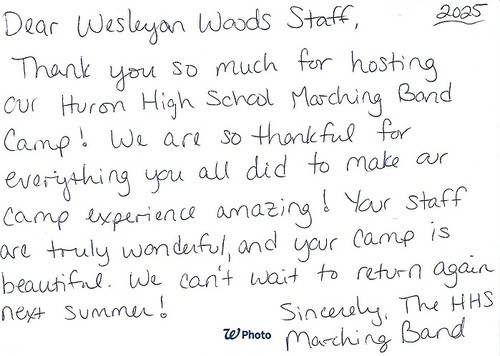 2025
Dear Wesleyan Woods Staff,
Thank you so much for hosting
our Huron High School Marching Band
Camp! We are so thankful for
everything you all did to make our
camp experience amazing! Your staff
are truly wonderful, and your camp is
beautiful. We can't wait to return again
next summer!
Sincerely, The HHS
Marching Band
W Photo